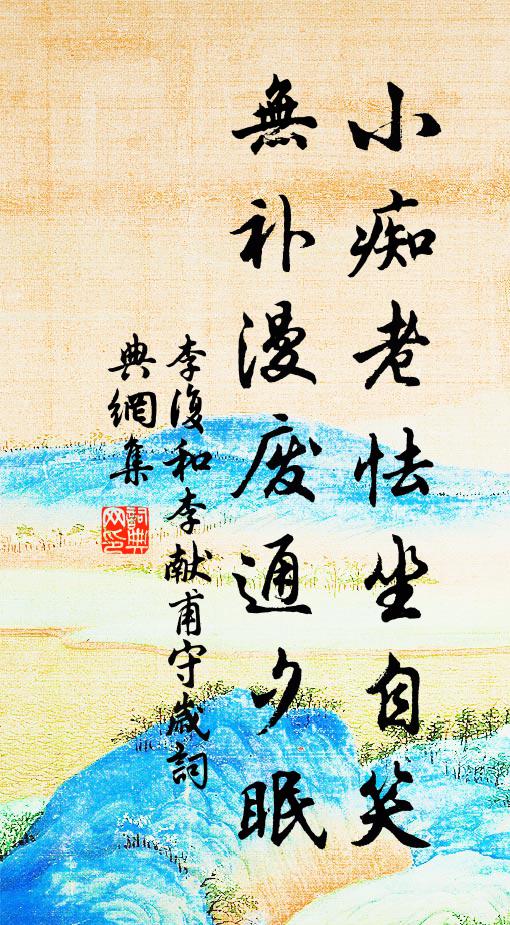 小痴老怯坐自笑
無补漫废通夕眠
李復和李献甫守歲詞
典網集
詞典网印